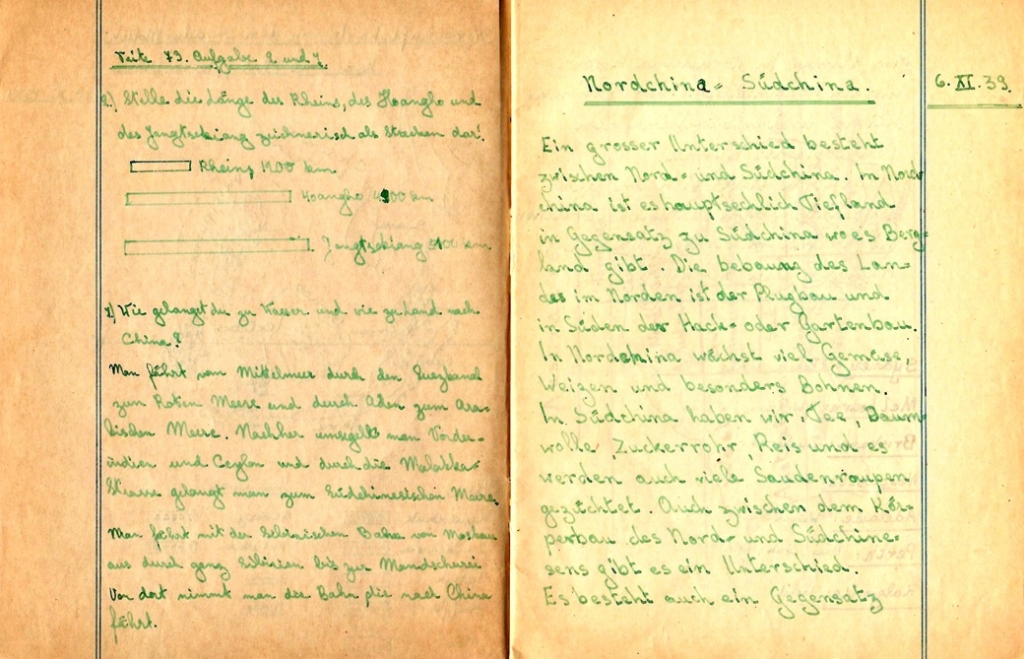 Seite 73. Aufgabe 2 und 7.
2) Stelle die Länge des Rheins, des Hoangho und
des Jangtsekiang zeichnerisch als Strecken dar!
Rheins 1400 km
Hoangho 4900 km
Jangtsekiang 5100 km
7) Wie gelangst du zu Wasser und wie zu Land nach
China?
Man fährt vom Mittelmeer durch den Suezkanal
zum Roten Meere und durch Aden zum Ara-
bischen Meere. Nachher umsegelt man Vorder-
indien und Ceylon und durch die Malakka-
Strasse gelangt man zum Südchinesischen Meere.
Man fährt mit der Bahn von Moskau
aus durch ganz Sibirien bis zur Mandschurei
Von dort nimmt man die Bahn die nach China
fährt.
Nordchina - Südchina.
6. XI. 39.
Ein grosser Unterschied besteht
zwischen Nord- und Südchina. In Nord
china ist es hauptsechlich Tiefland
in Gegensatz zu Südchina wo es Berg-
land gibt. Die bebauung des Lan-
des im Norden ist der Pflugbau und
in Süden der Hack- oder Gartenbau.
In Nordchina wächst viel Gemüse,
Weizen und besonders Bohnen.
In Südchina haben wir, Tee, Baum-
wolle, Zuckerrohr, Reis und es
werden auch viele Saudenraupen
gezüchtet. Auch zwischen dem Kör-
perbau des Nord- und Südchine-
sens gibt es ein Unterschied.
Es besteht auch ein Gegensatz